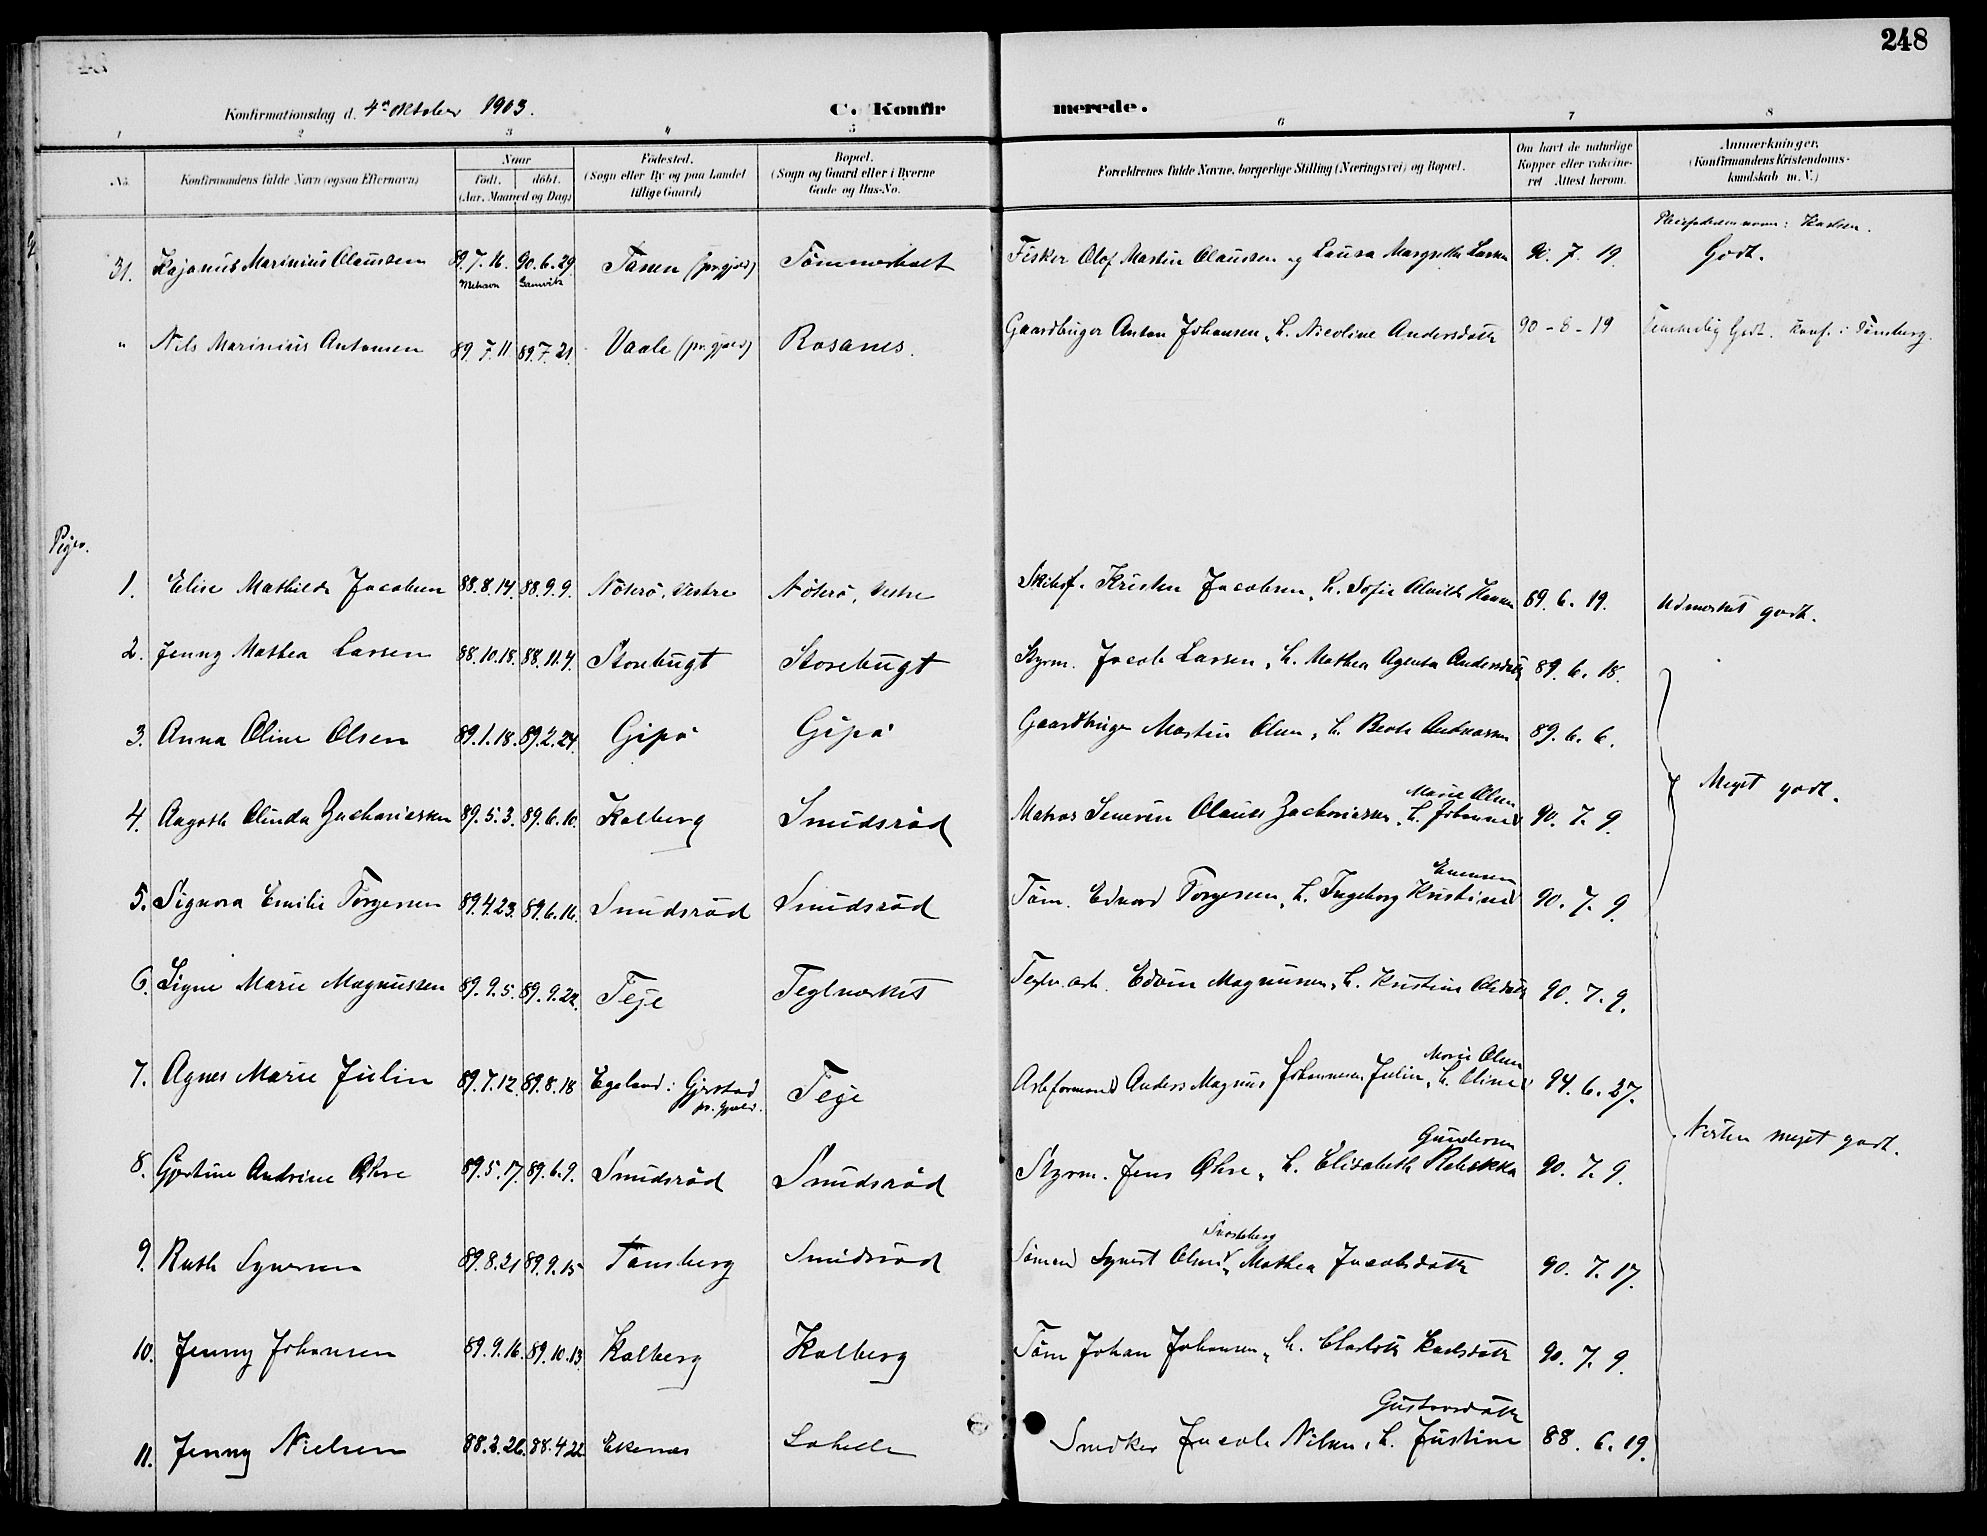 248
Konfirmationsdag d. 4de Oktober 1903.
C. Konfirmerede.
1 2 3 4 5 6 7 8
No. Konfirmandens fulde Navn (ogsaa Efternavn)
Naar født. døbt. (Aar, Maaned og Dag)
Fødested. (Sogn eller By og paa Landet tillige Gaard)
Bopæl. (Sogn og Gaard eller i Byerne Gade og Hus-No.
Forældrenes fulde Navne, borgerlige Stilling (Næringsvei) og Bopæl.
Om havt de naturlige Kopper eller vaccineret Attest herom.
Anmærkninger, (Konfirmandens Kristendomskundskab m. V.)
31. Kajanus Marinius Claussen 89.7.16. Mehavn 90.6.29 Gamvik Tanen (pr.gjæld) Tømmerholt Fisker Olof Martin Claussen og Laura Margrethe Larsen 90. 7. 19. Pleieforældrenes navn: Karlsen. Godt.
" Nils Marinius Antonsen 89.7.11 89.7.21. Vaale (pr.gjæld) Rosanes. Gaardbruger Anton Johansen, h. Nicoline Andersdatter 90-8-19 Temmelig Godt. Konf. i Tønsberg.
Piger.
1. Elise Mathilde Jacobsen 88.8.14. 88.9.9. Nøterø, Vestre Nøterø, Vestre Skibsf. Kristen Jacobsen, h. Sofie Alvilde Hansen 89. 6. 19. Udmerket godt.
2. Jenny Mathea Larsen 88.10.18. 88.11.4. Storebugt Storebugt Styrm. Jacob Larsen, h. Mathea Agenta Andersdatter 89. 6. 18.
3. Anna Oline Olsen 89.1.18. 89.2.24. Gipø Gipø Gaardbruger Martin Olsen, h. Berte Andreassen 89. 6. 6.
Meget godt.
4. Aagoth Olinda Zachariassen 89.5.3. 89.6.10. Kalberg Smidsrød Matros Severin Claus Zachariassen, h. Johanne Marie Olsen 90. 7. 9.
5. Signora Emilie Torgersen 89.4.23. 89.6.16. Smidsrød Smidsrød Tøm. Edvard Torgersen, h. Ingeborg Kristine Evensen 90. 7. 9.
6. Signe Marie Magnussen 89.9.5. 89.9.22. Teje Teglverket Teglv.arb. Edvin Magnussen, h. Kristine Olsdatter 90. 7. 9.
7. Agnes Marie Julin 89.7.12. 89.8.18 Egeland i Gjerstad pr. gjæld. Teje Arb.formand Anders Magnus Johannesen Julin, h. Oline Marie Olsen 94. 6. 27.
Næsten meget godt.
8. Gjertine Andrine Ohre 89.5.17. 89.6.9. Smidsrød Smidsrød Styrm. Jens Ohre, h. Elisabeth Rebekka Gundersen 90. 7. 9.
9. Ruth Syversen 89.8.21 89.9.15 Tønsberg Smidsrød Sømand Syvert Olsen, Mathea Jacobsdatter 90. 7. 17.
10. Jenny Johansen 89.9.16. 89.10.13. Kalberg Kalberg Tøm Johan Johansen, h. Charlotte Karlsdatter 90. 7. 9.
11. Jenny Nielsen 88.2.26. 88.4.22 Ekenæs Lohelle Snedker Jacob Nilsen, h. Justine Gustavsdatter 88. 6. 19.